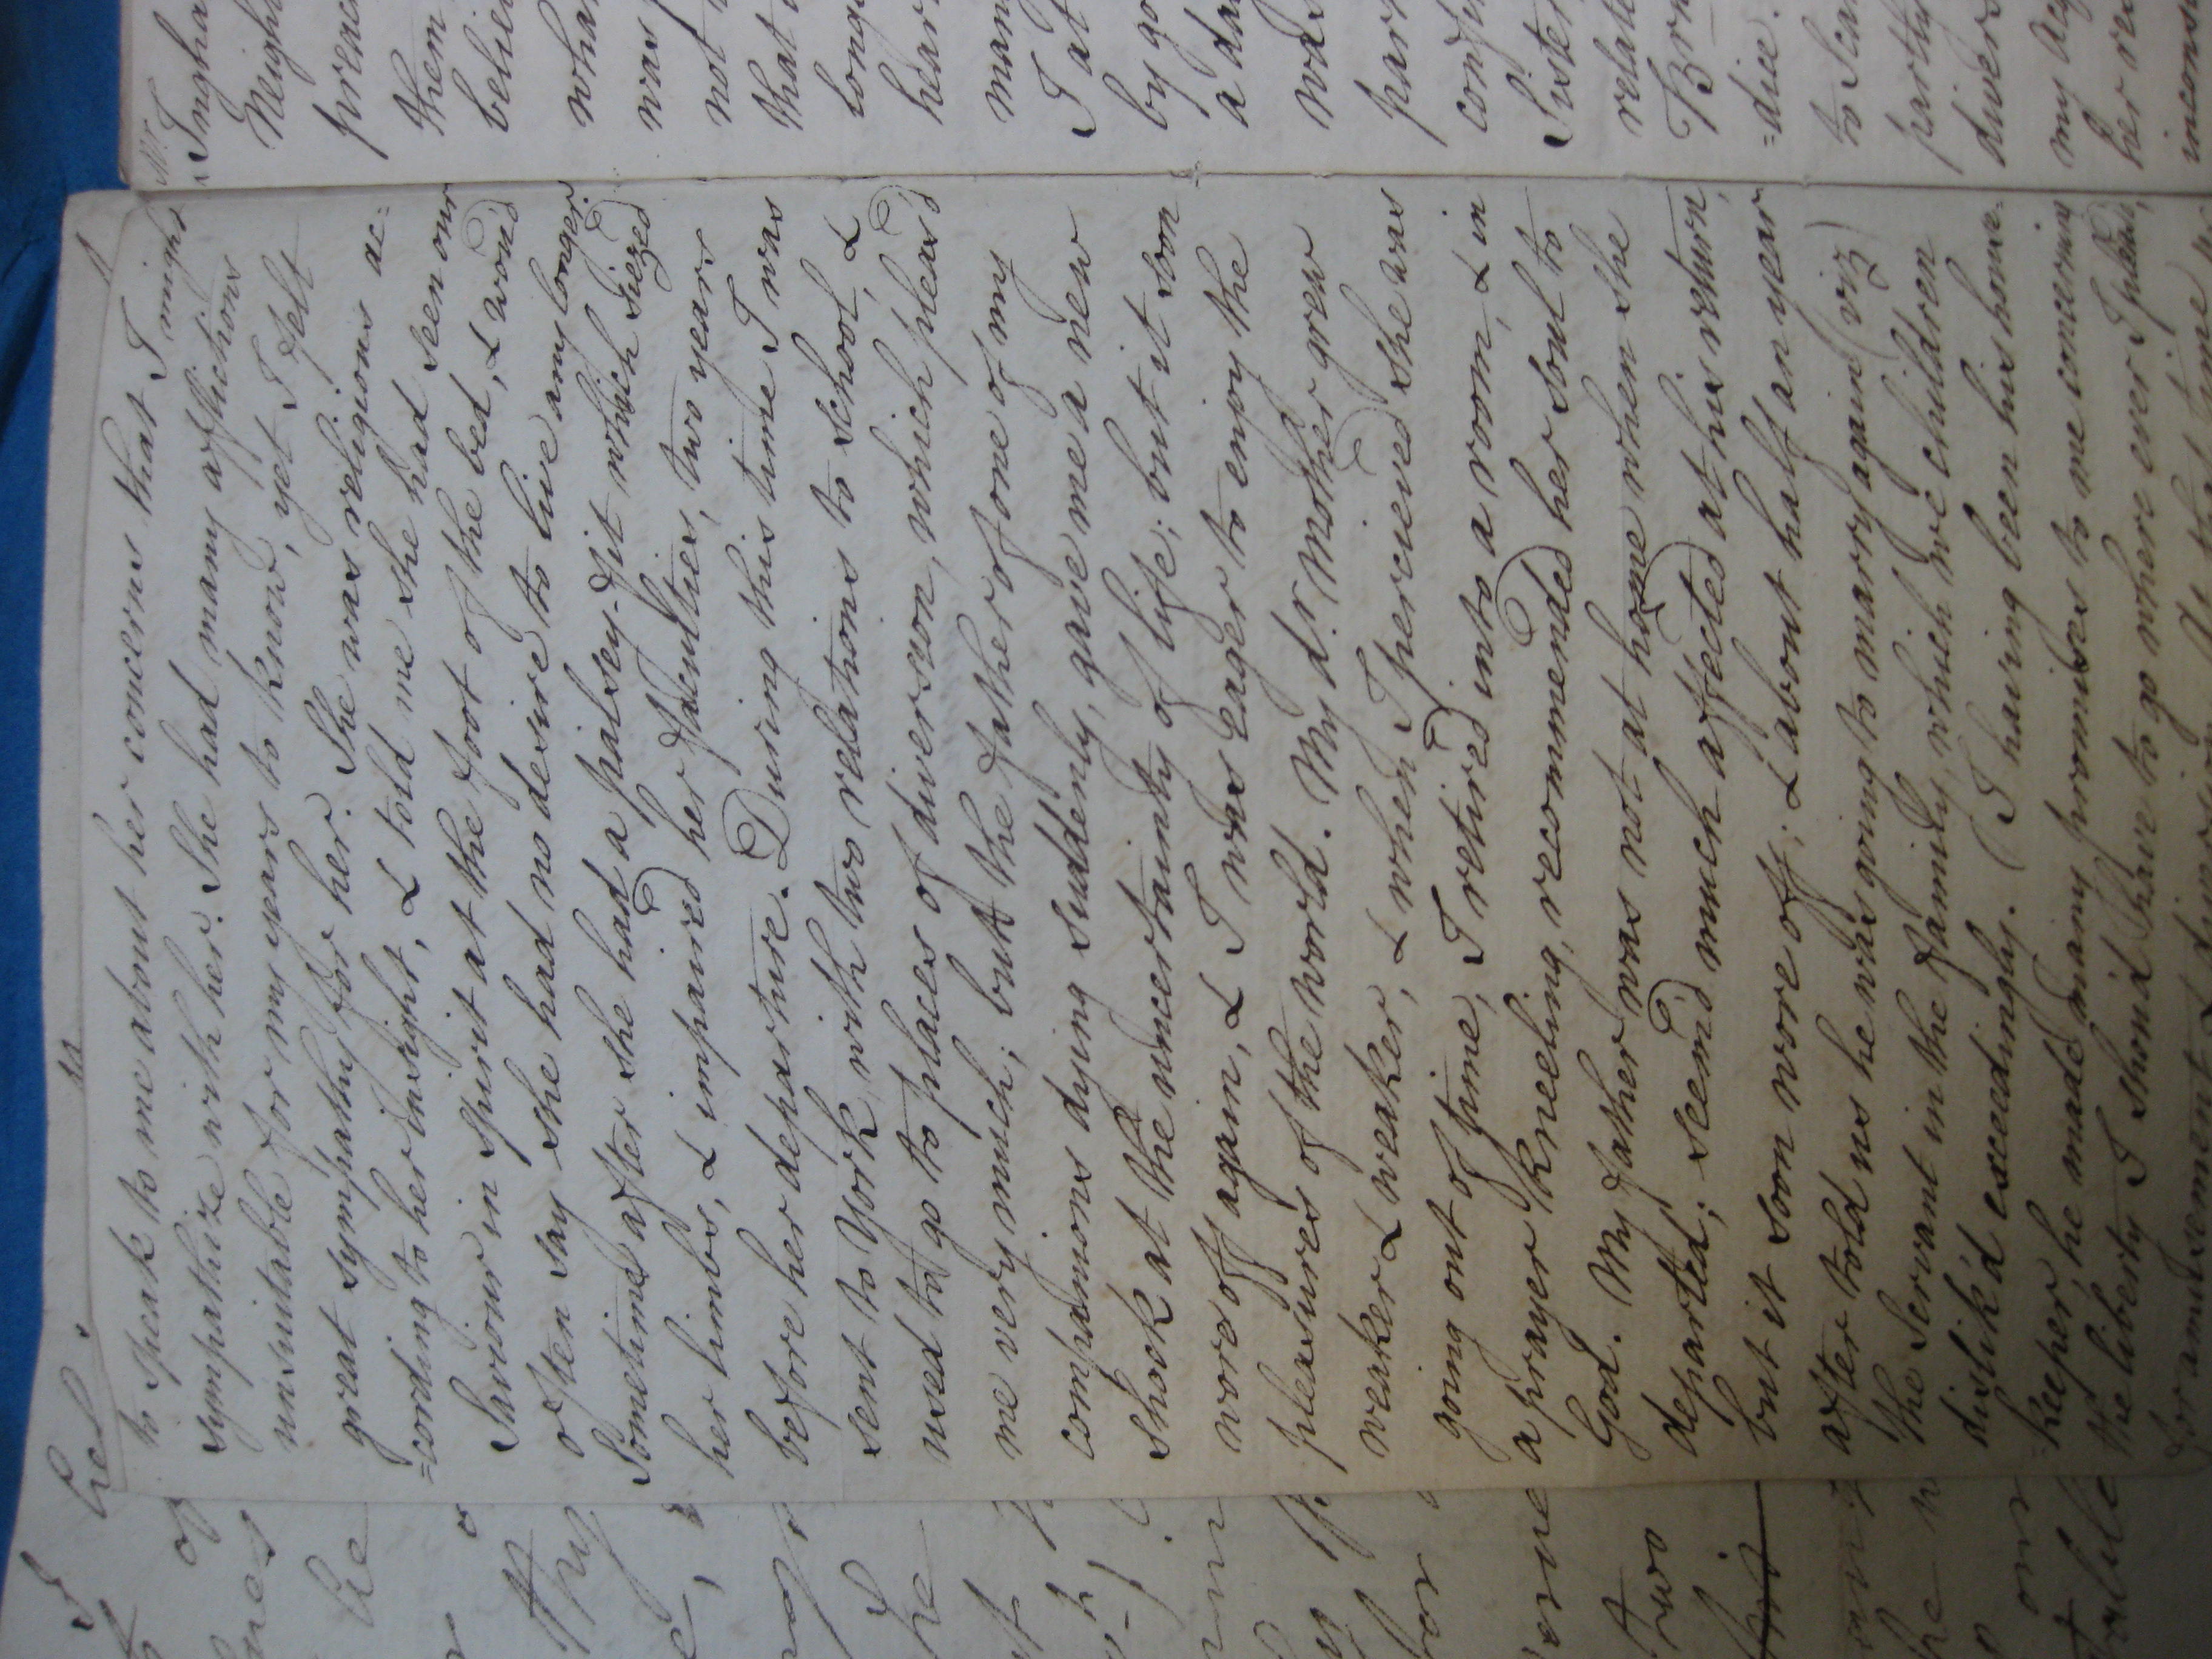 to speak to me about her concerns that I might
sympathize with her. She had many afflictions
unsuitable for my years to know, yet I felt
great sympathy for her. She was religious ac=
=cording to her insight, & told me she had seen our
Saviour in spirit at the foot of the bed, & wou'd
often say she had no desire to live any longer.
Sometime after she had a palsey-fit which siezed
her limbs, & impaired her faculties, two years
before her departure. During this time I was
sent to York, with two relations to school, &
used to go to places of diversion, which pleas'd
me very much; but the father of one of my
companions dying suddenly, gave me a new
shock at the uncertainty of life; but it soon
wore off again, & I was eager to enjoy the
pleasures of the world. My dr. Mother grew
weaker & weaker, & when I percieved she was
going out of time, I retired into a room, & in
a prayer kneeling, recommended her soul to
God. My father was not at home when she
departed; seem'd much affected at his return,
but it soon wore off; & about half an year
after told us he was going to marry again (viz)
the Servant in the family, which we children
dislik'd exceedingly. (I having been his house=
keeper, he made many promises to me concerning
the liberty I shou'd have to go where ever I pleas'd,
for amusement & diversion. At that time
Mr.
Ingha
Neigh
preac
them
belie
wha
was
not
that
long
hear
man
I at
by go
a da
was
part
conf
Sister
relate
Brn
=dice.
to Sca
partly
divers
my Acq
her re
incons